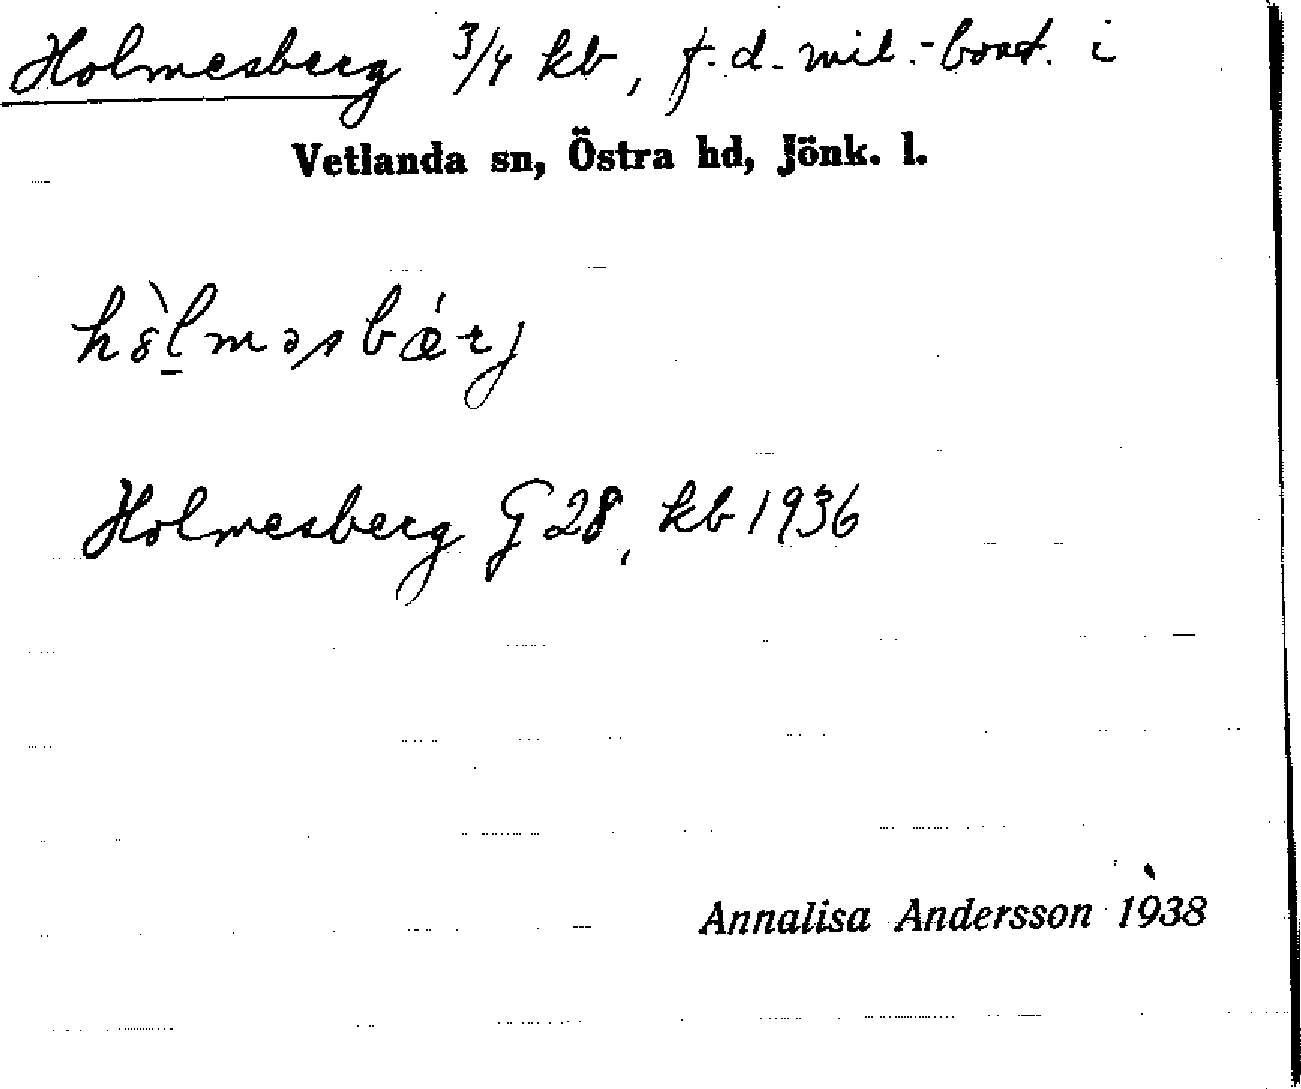 Holmesberg 3/4 kb, f. d. mil.-bost. i
Vetlanda sn, Östra hd, Jönk. l.
hòlməsbǽrj
Holmesberg G 28, kb 1936
Annalisa Andersson 1938